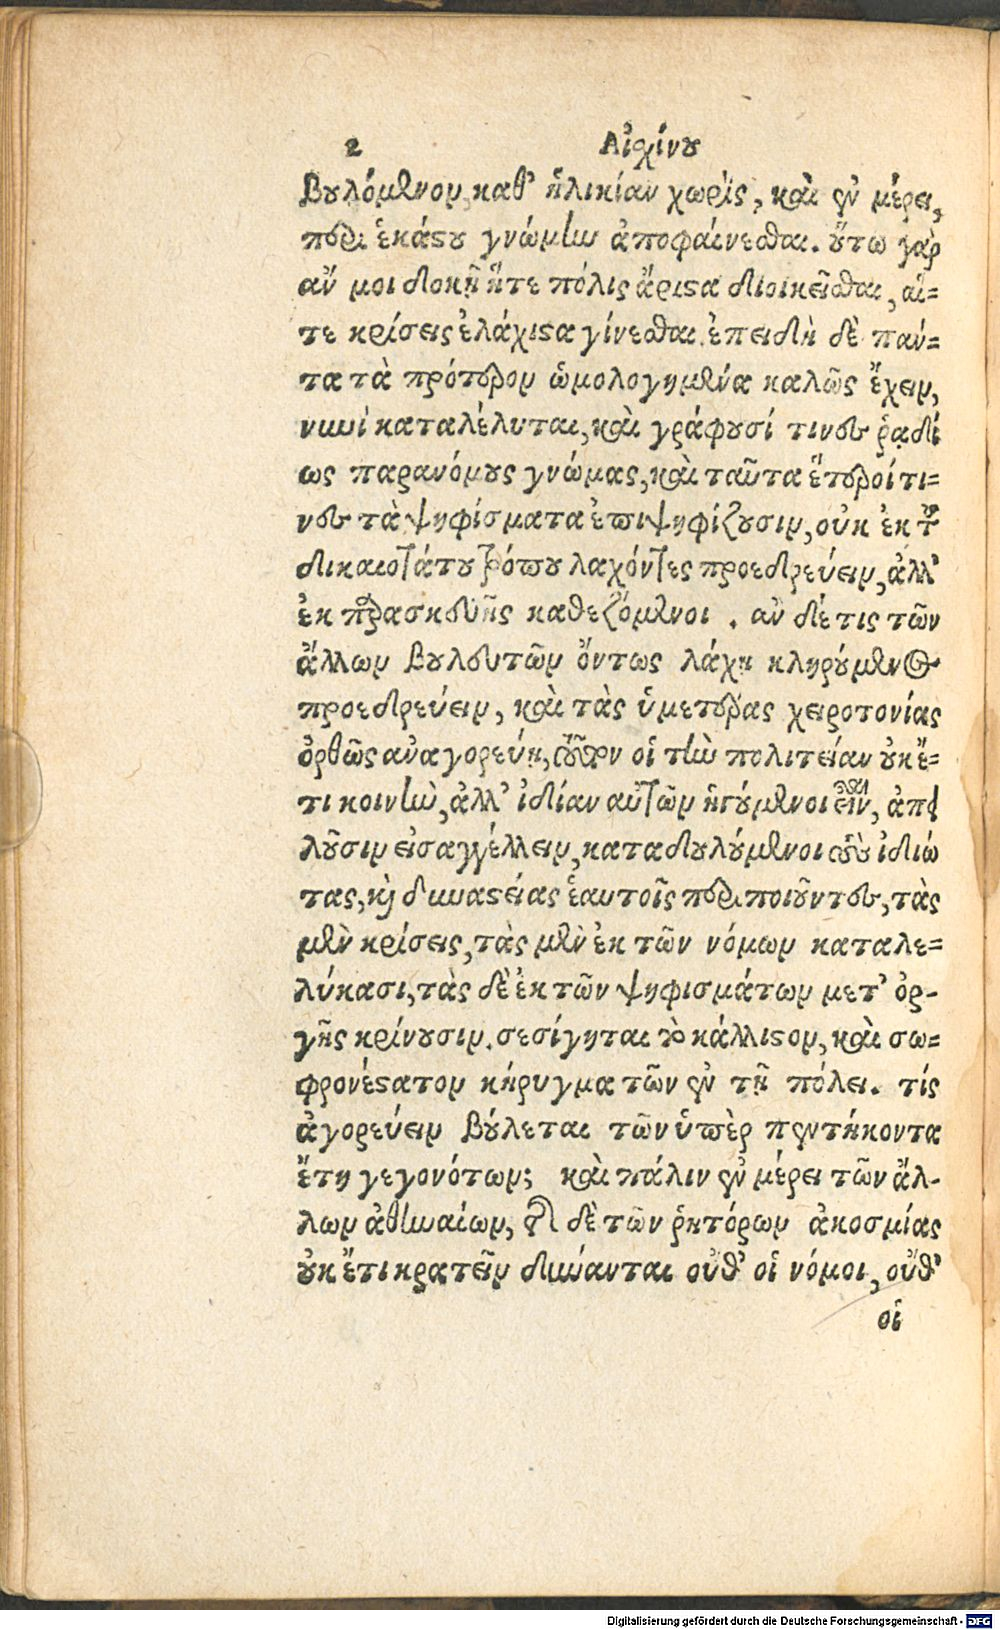 2 Αἰσχίνου
βουλόμενον, καθ' ἡλικίαν χωρὶς, καὶ ἐν μέρει,
περὶ ἑκάστου γνώμην ἀποφαίνεσθαι. οὕτω γὰρ
ἄν μοι δοκῇ ἥτε πόλις ἄριστα διοικεῖσθαι, αἵ-
τε κρίσεις ἐλάχιστα γίνεσθαι. ἐπειδὴ δὲ πάν-
τα τὰ πρότερον ὡμολογημένα καλῶς ἔχειν,
νυνὶ καταλέλυται, καὶ γράφουσί τινες ῥᾳδί
ως παρανόμους γνώμας, καὶ ταῦτα ἕτεροί τι-
νες τὰ ψηφίσματα ἐπιψηφίζουσιν, οὐκ ἐκ τοῦ
δικαιοτάτου τρόπου λαχόντες προεδρεύειν, ἀλλ'
ἐκ παρασκευῆς καθεζόμενοι. ἂν δέ τις τῶν
ἄλλων βουλευτῶν ὄντως λάχῃ κληρούμενος
προεδρεύειν, καὶ τὰς ὑμετέρας χειροτονίας
ὀρθῶς ἀναγορεύῃ, τοῦτον οἱ τὴν πολιτείαν οὐκέ-
τι κοινὴν, ἀλλ' ἰδίαν αὑτῶν ἡγούμενοι εἶναι, ἀπει
λοῦσιν εἰσαγγέλλειν, καταδουλούμενοι τοὺς ἰδιώ
τας, καὶ δυναστείας ἑαυτοῖς περιποιοῦντες, τὰς
μὲν κρίσεις, τὰς μὲν ἐκ τῶν νόμων καταλε-
λύκασι, τὰς δὲ ἐκ τῶν ψηφισμάτων μετ' ὀρ-
γῆς κρίνουσιν. σεσίγηται τὸ κάλλιστον, καὶ σω-
φρονέστατον κήρυγμα τῶν ἐν τῇ πόλει. τίς
ἀγορεύειν βούλεται τῶν ὑπὲρ πεντήκοντα
ἔτη γεγονότων; καὶ πάλιν ἐν μέρει τῶν ἄλ-
λων ἀθηναίων, τῆς δὲ τῶν ῥητόρων ἀκοσμίας
οὐκ ἔτι κρατεῖν δύνανται οὔθ' οἱ νόμοι, οὔθ'
οἱ
Digitalisierung gefördert durch die Deutsche Forschungsgemeinschaft - DFG